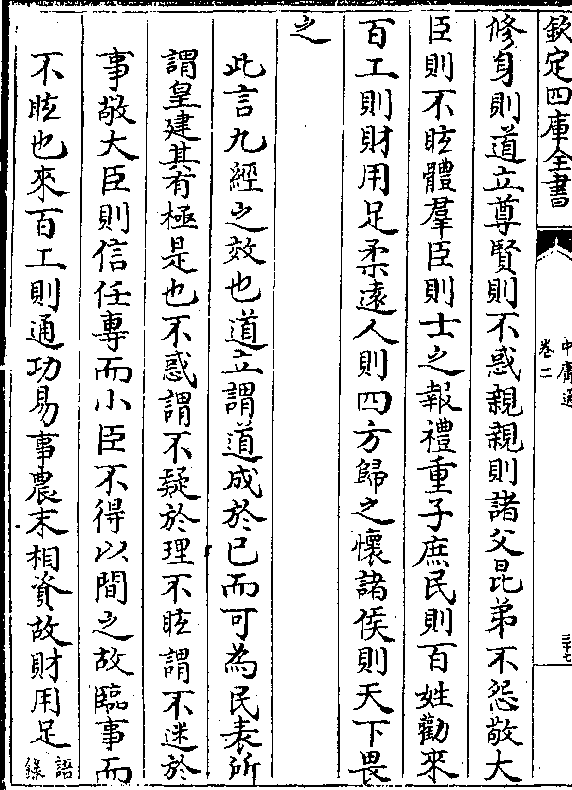 欽定四庫全書
中庸通
卷二
三十七
修身則道立尊賢則不惑親親則諸父昆弟不怨敬大
臣則不眩體羣臣則士之報禮重子庶民則百姓勸來
百工則財用足柔遠人則四方歸之懷諸侯則天下畏
之
此言九經之效也道立謂道成於己而可為民表所
謂皇建其有極是也不惑謂不疑於理不眩謂不迷於
事敬大臣則信任專而小臣不得以間之故臨事而
不眩也來百工則通功易事農末相資故財用足
語
錄